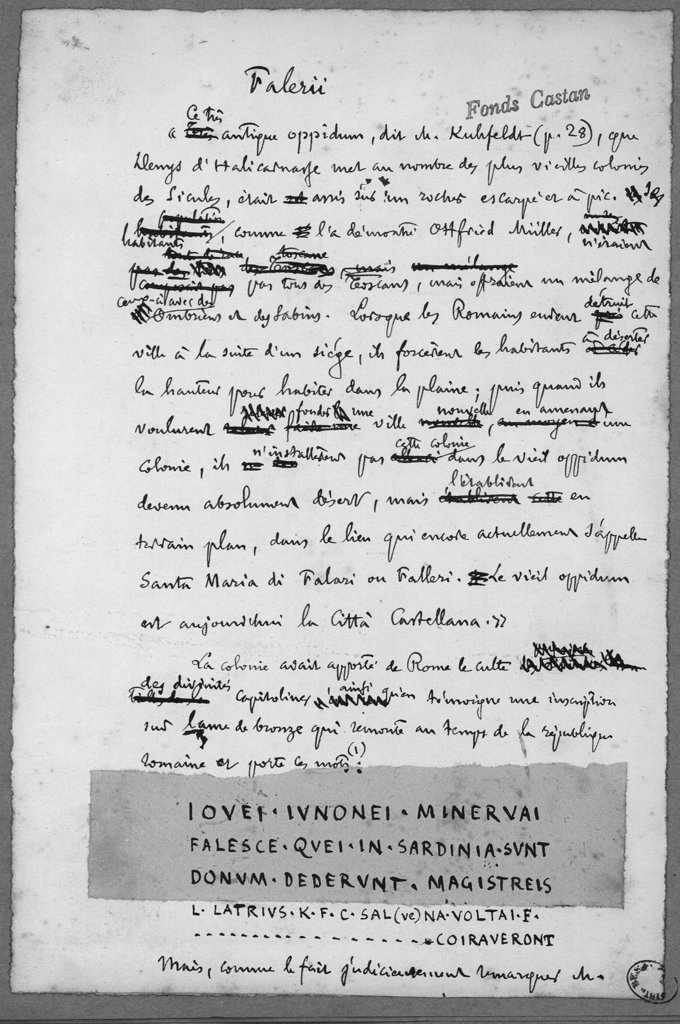 Falerii
Fonds Castan
Ce très
« antique oppidum, dit M. Kuhfeldt (p. 28), que
Denys d'Halicarnasse met au nombre des plus vieilles colonies
des Sicules, était assis sur un rocher escarpé et à pic. Ses
habitants, comme l'a démontré Ottfried Müller, n'étaient
pas tous des Toscans, mais offraient un mélange de
ceux-ci avec des
Ombriens et des Sabins. Lorsque les Romains eurent détruit cette
ville à la suite d'un siége, ils forcèrent les habitants à déserter
la hauteur pour habiter dans la plaine ; puis quand ils
voulurent fonder une ville nouvelle, en amenant une
colonie, ils n'installèrent pas cette colonie dans le vieil oppidum
devenu absolument désert, mais l'établirent en
terrain plan, dans le lieu qui encore actuellement s'appelle
Santa Maria di Falari ou Falleri. Le vieil oppidum
est aujourd'hui la Città Castellana. »
La colonie avait apporté de Rome le culte
des divinités capitolines, ainsi qu'en témoigne une inscription
sur lame de bronze qui remonte au temps de la république
romaine et porte ces mots (1) :
IOVEI · IVNONEI · MINERVAI
FALESCE · QVEI · IN · SARDINIA · SVNT
DONVM · DEDERVNT · MAGISTREIS
L · LATRIVS · K · F · C · SAL(ve)NA · VOLTAI · F ·
- - - - - - - - - - - - - - - COIRAVERONT
Mais, comme le fait judicieusement remarquer M.